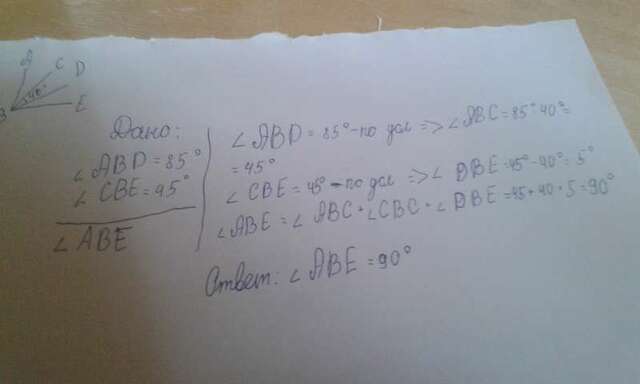 A
C
D
40°
B
E
Дано:
∠ABD = 85°
∠CBE = 45°
∠ABE
∠ABD = 85° - по усл => ∠ABC = 85° 40° =
= 45°
∠CBE = 45° - по усл => ∠DBE = 45° - 40° = 5°
∠ABE = ∠ABC + ∠CBC + ∠DBE = 45 + 40 + 5 = 90°
Ответ: ∠ABE = 90°